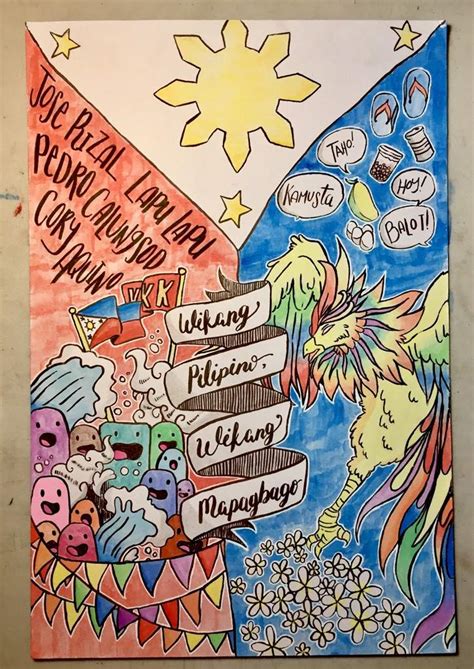 JOSE RIZAL LAPU LAPU
PEDRO CALUNGSOD
CORY AQUINO
TAHO!
KAMUSTA
HOY!
BALOT!
KKK
Wikang
Pilipino,
Wikang
Mapagbago